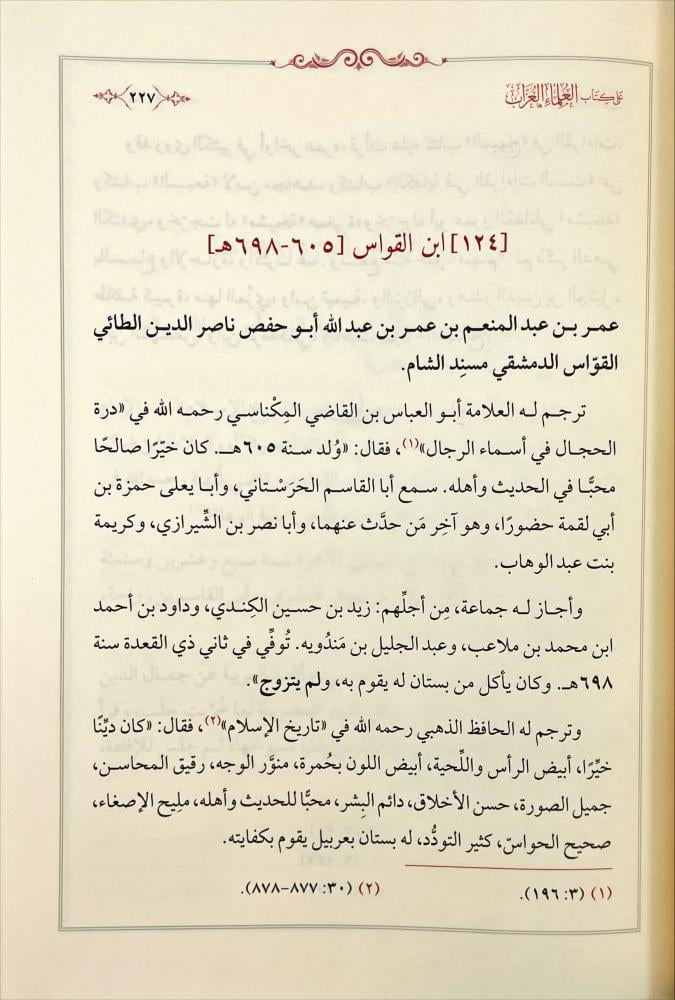 على كتاب العلماء العزاب
٢٢٧
[١٢٤] ابن القواس [٦٠٥-٦٩٨هـ]
عمر بن عبد المنعم بن عمر بن عبد الله أبو حفص ناصر الدين الطائي
القوّاس الدمشقي مسنِد الشام.
ترجم له العلامة أبو العباس بن القاضي المِكْناسي رحمه الله في «درة
الحجال في أسماء الرجال»(١)، فقال: «وُلد سنة ٦٠٥هـ. كان خيّرًا صالحًا
محبًّا في الحديث وأهله. سمع أبا القاسم الحَرَسْتاني، وأبا يعلى حمزة بن
أبي لقمة حضورًا، وهو آخِر مَن حدَّث عنهما، وأبا نصر بن الشِّيرازي، وكريمة
بنت عبد الوهاب.
وأجاز له جماعة، مِن أجلِّهم: زيد بن حسين الكِندي، وداود بن أحمد
ابن محمد بن ملاعب، وعبد الجليل بن مَندُويه. تُوفِّي في ثاني ذي القعدة سنة
٦٩٨هـ. وكان يأكل من بستان له يقوم به، ولم يتزوج».
وترجم له الحافظ الذهبي رحمه الله في «تاريخ الإسلام»(٢)، فقال: «كان ديِّنًا
خيِّرًا، أبيض الرأس واللِّحية، أبيض اللون بحُمرة، منوَّر الوجه، رقيق المحاسن،
جميل الصورة، حسن الأخلاق، دائم البِشر، محبًّا للحديث وأهله، مليح الإصغاء،
صحيح الحواسّ، كثير التودُّد، له بستان بعربيل يقوم بكفايته.
(١) (٣: ١٩٦).
(٢) (٣٠: ٨٧٧-٨٧٨).